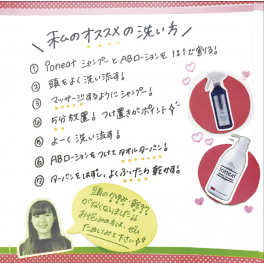 私のオススメの洗い方
① Poneat シャンプーとABローションを1:1で割る!
② 頭をよく洗い流す!
③ マッサージするようにシャンプー!
④ 5分放置! つけ置きがポイント
⑤ よーく洗い流す!
⑥ ABローションをつけてタオルターバン!
⑦ ターバンをはずし、よくふいたら乾かす!
頭のかゆみ・乾き
がなくなりました!!
お悩みの方は、ぜひ
ためしてみて下さい
Poneat